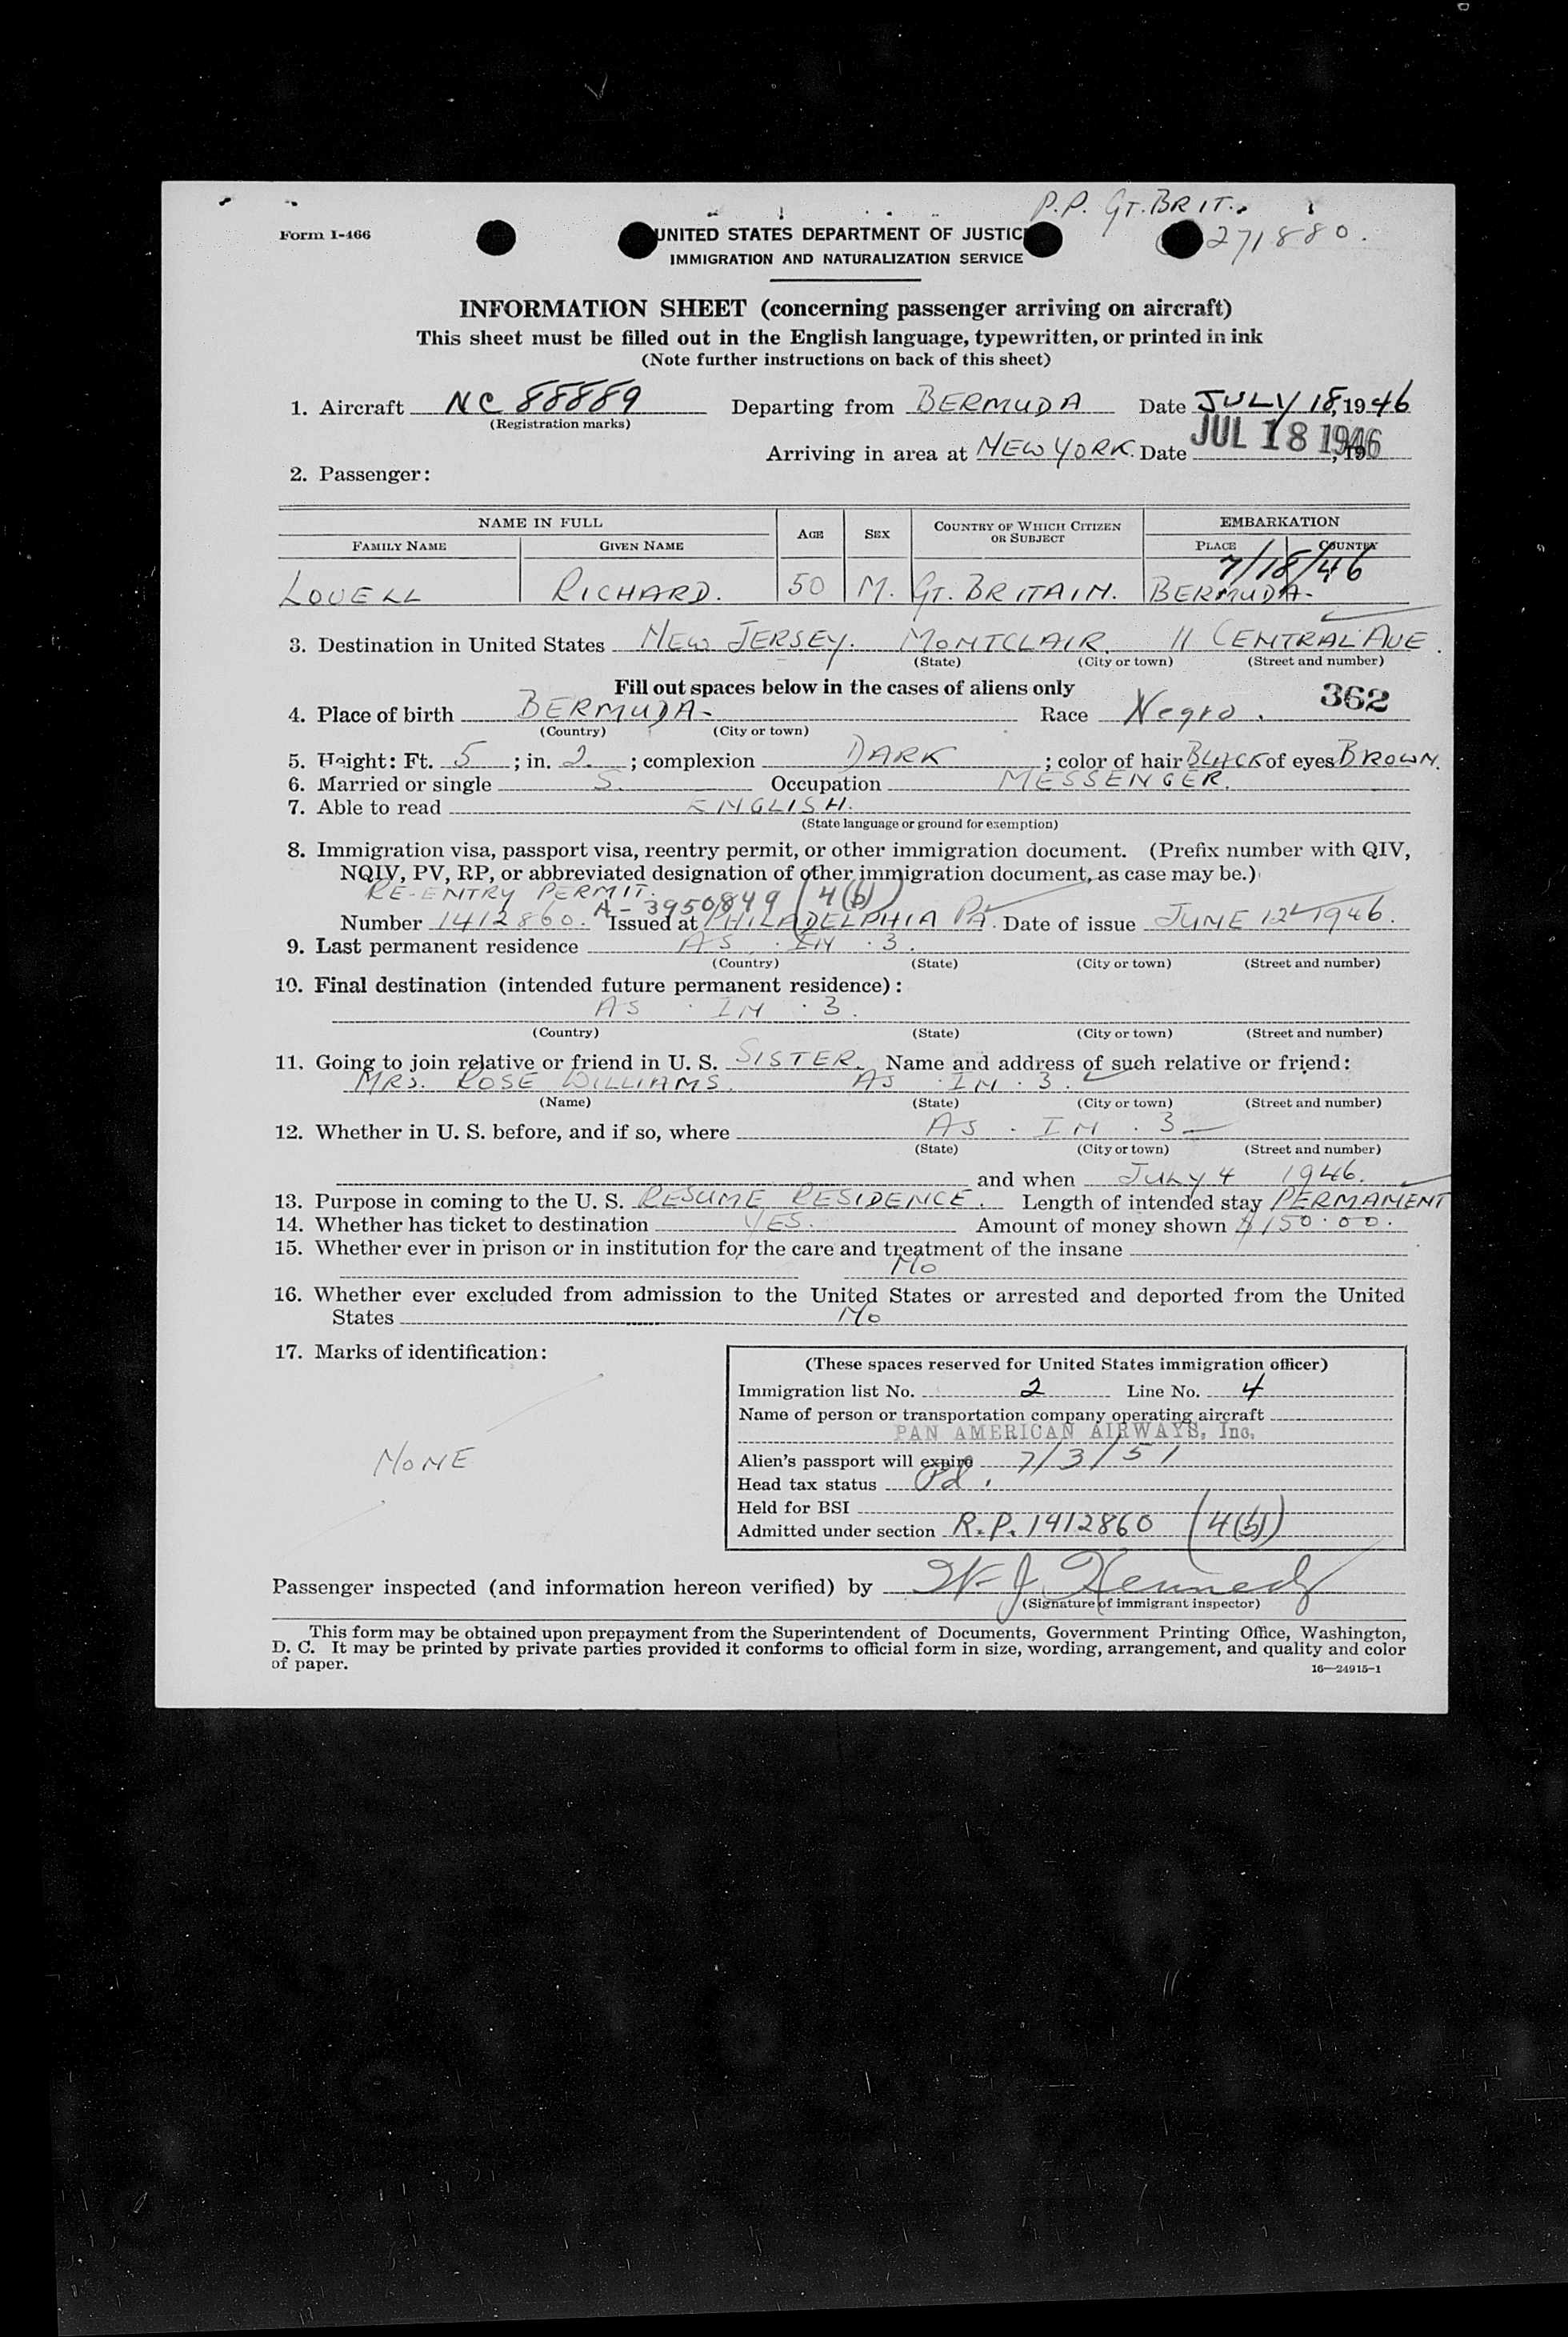 P.P. GT. BRIT.
271880.
Form I-466
UNITED STATES DEPARTMENT OF JUSTIC
IMMIGRATION AND NATURALIZATION SERVICE
INFORMATION SHEET (concerning passenger arriving on aircraft)
This sheet must be filled out in the English language, typewritten, or printed in ink
(Note further instructions on back of this sheet)
1. Aircraft NC 88889 Departing from BERMUDA Date JULY 18, 1946
(Registration marks)
Arriving in area at NEW YORK. Date JUL 18 1946, 19
2. Passenger:
NAME IN FULL AGE SEX COUNTRY OF WHICH CITIZEN OR SUBJECT EMBARKATION
FAMILY NAME GIVEN NAME PLACE COUNTRY
7/18/46
LOVELL RICHARD. 50 M. GT. BRITAIN. BERMUDA-
3. Destination in United States NEW JERSEY. MONTCLAIR. 11 CENTRAL AVE.
(State) (City or town) (Street and number)
Fill out spaces below in the cases of aliens only 362
4. Place of birth BERMUDA- Race Negro.
(Country) (City or town)
5. Height: Ft. 5; in. 2.; complexion DARK; color of hair BLACK of eyes BROWN.
6. Married or single S. Occupation MESSENGER.
7. Able to read ENGLISH.
(State language or ground for exemption)
8. Immigration visa, passport visa, reentry permit, or other immigration document. (Prefix number with QIV,
NQIV, PV, RP, or abbreviated designation of other immigration document, as case may be.)
RE-ENTRY PERMIT. A-3950849 (4(b))
Number 1412860. Issued at PHILADELPHIA PA. Date of issue JUNE 12 1946.
9. Last permanent residence AS. IN. 3.
(Country) (State) (City or town) (Street and number)
10. Final destination (intended future permanent residence):
AS. IN. 3.
(Country) (State) (City or town) (Street and number)
11. Going to join relative or friend in U. S. SISTER. Name and address of such relative or friend:
MRS. ROSE WILLIAMS. AS. IN. 3.
(Name) (State) (City or town) (Street and number)
12. Whether in U. S. before, and if so, where AS. IN. 3-
(State) (City or town) (Street and number)
and when JULY 4 1946.
13. Purpose in coming to the U. S. RESUME RESIDENCE. Length of intended stay PERMANENT
14. Whether has ticket to destination YES. Amount of money shown $150.00.
15. Whether ever in prison or in institution for the care and treatment of the insane
NO
16. Whether ever excluded from admission to the United States or arrested and deported from the United
States NO
17. Marks of identification:
NONE
(These spaces reserved for United States immigration officer)
Immigration list No. 2 Line No. 4
Name of person or transportation company operating aircraft
PAN AMERICAN AIRWAYS, Inc.
Alien's passport will expire 7/3/51
Head tax status Pd.
Held for BSI
Admitted under section R.P. 1412860 (4(b))
Passenger inspected (and information hereon verified) by W. J. Kennedy
(Signature of immigrant inspector)
This form may be obtained upon prepayment from the Superintendent of Documents, Government Printing Office, Washington,
D. C. It may be printed by private parties provided it conforms to official form in size, wording, arrangement, and quality and color
of paper.
16—24915-1